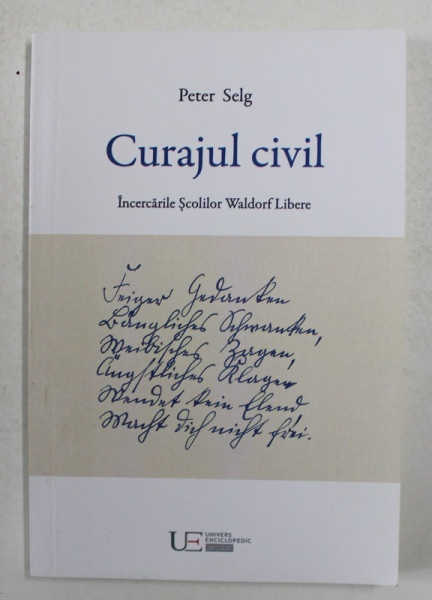 Peter Selg
Curajul civil
Încercările Școlilor Waldorf Libere
Feiger Gedanken
Bängliches Schwanken,
Weibisches Zagen,
Ängstliches Klagen
Wendet kein Elend,
Macht dich nicht frei.
UE UNIVERS
ENCICLOPEDIC